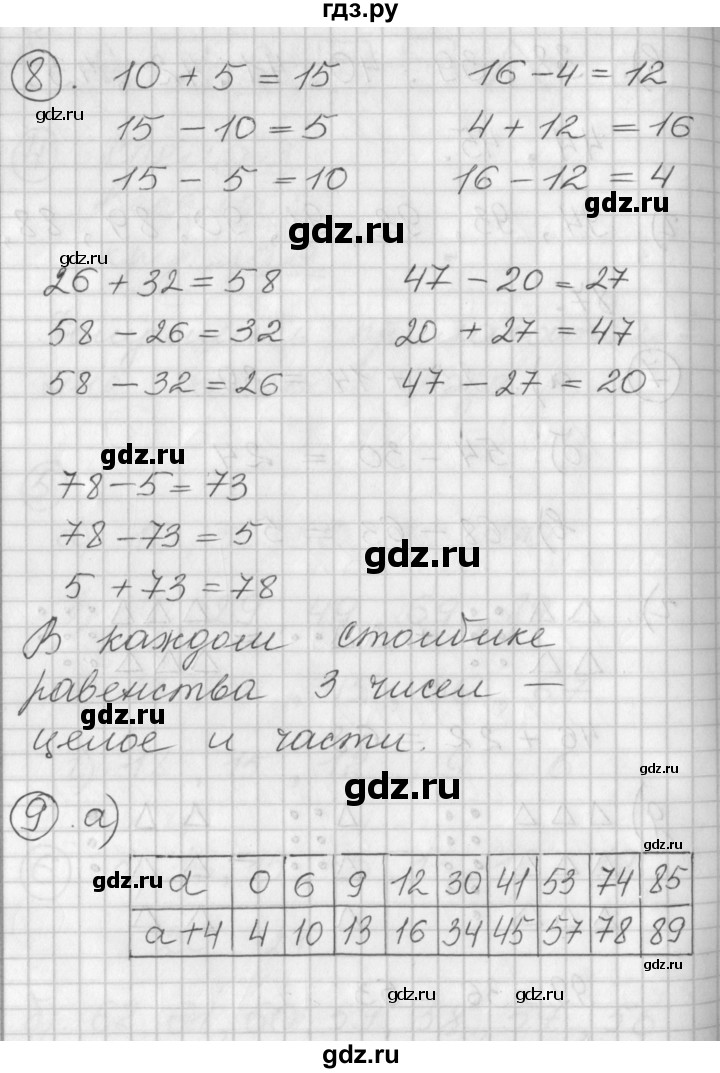 гдз.ру
8. 10 + 5 = 15    16 - 4 = 12
gdz.ru
15 - 10 = 5    4 + 12 = 16
15 - 5 = 10    16 - 12 = 4
gdz.ru
gdz.ru
gdz.ru
26 + 32 = 58    47 - 20 = 27
58 - 26 = 32    20 + 27 = 47
58 - 32 = 26    47 - 27 = 20
gdz.ru
78 - 5 = 73
78 - 73 = 5
gdz.ru
5 + 73 = 78
В каждом столбике
равенства 3 чисел —
gdz.ru
целое и части.
gdz.ru
gdz.ru
9. а)
gdz.ru
gdz.ru
a 0 6 9 12 30 41 53 74 85
a+4 4 10 13 16 34 45 57 78 89
gdz.ru
gdz.ru gdz.ru
gdz.ru